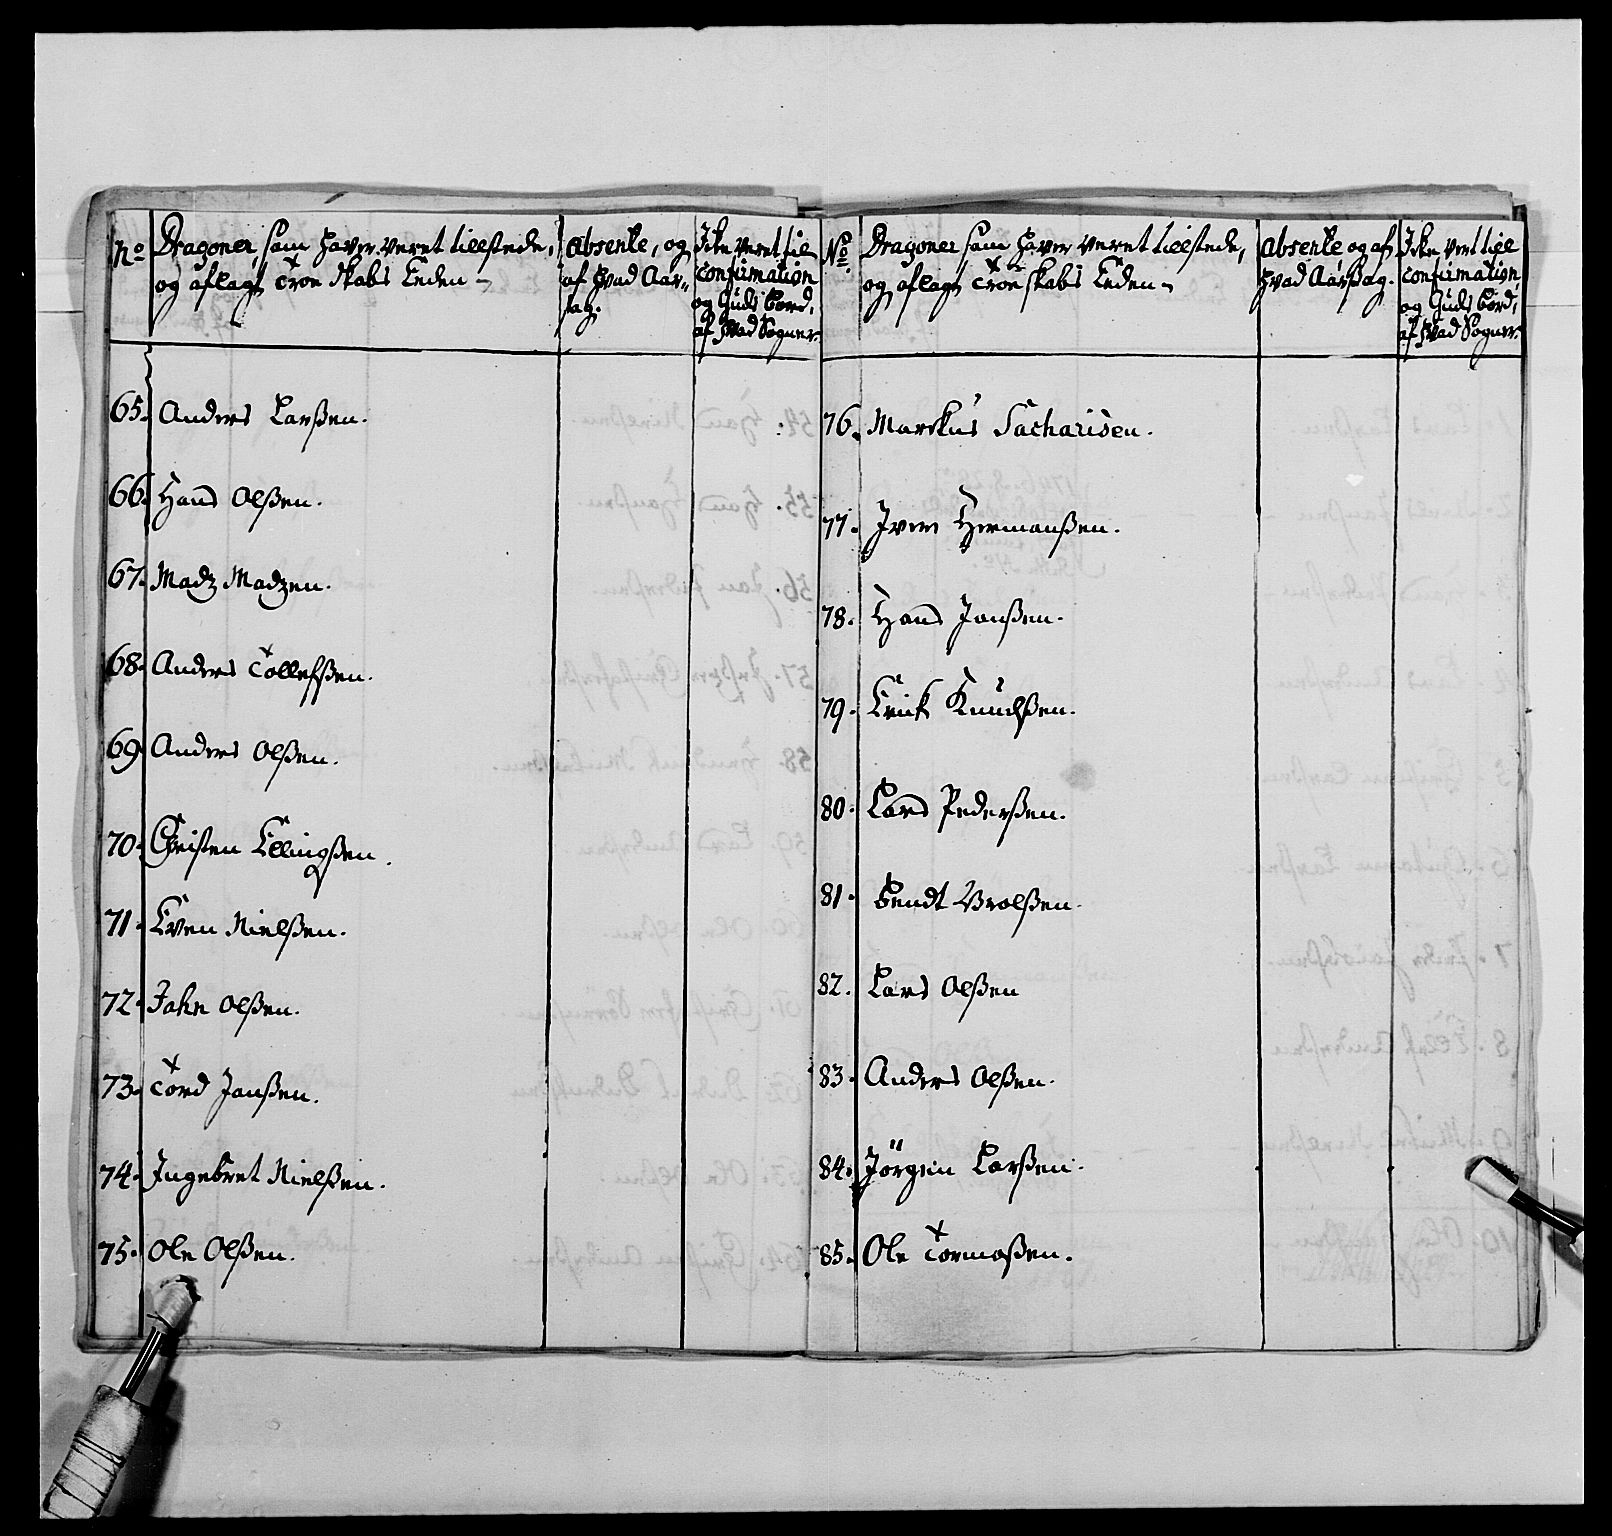 No
Dragoner, som haver veret tillstede,
og aflagt Troe skabs Eeden -
absente, og
af hvad Aar-
sag.
Icke veret til
confirmation
og Guds bord,
af hvad Sogner.
65. Anders Larßen.
66. Hans Olßen.
67. Madz Madzen.
68. Anders Tollefsßen.
69. Anders Olßen.
70. Christen Ellingßen.
71. Even Nielßen.
72. Jahn Olßen.
73. Tord Janßen.
74. Ingebret Nielßen.
75. Ole Olßen.
No.
Dragoner som haver veret tillstede,
og aflagt Troe skabs Eeden -
absente og af
hvad Aarßag.
Icke veret till
confirmation,
og Guds bord,
af hvad Sogner.
76. Markus Sacharisen.
77. Iver Hermanßen.
78. Hans Janßen.
79. Erick Knudßen.
80. Lars Pederßen.
81. Bendt Wrolßen.
82. Lars Olßen
83. Anders Olßen.
84. Jörgen Larßen.
85. Ole Tormoßen.